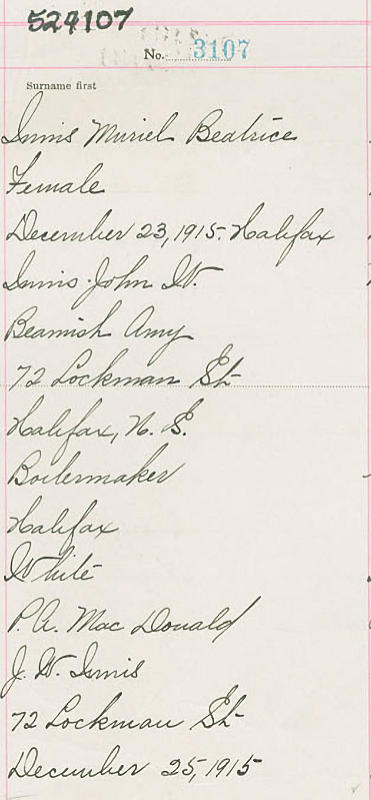 524107
No. 3107
Surname first
Innis Muriel Beatrice
Female
December 23, 1915. Halifax
Innis John W.
Beamish Amy
72 Lockman St
Halifax, N. S.
Boilermaker
Halifax
White
P. A. Mac Donald
J. W. Innis
72 Lockman St
December 25, 1915